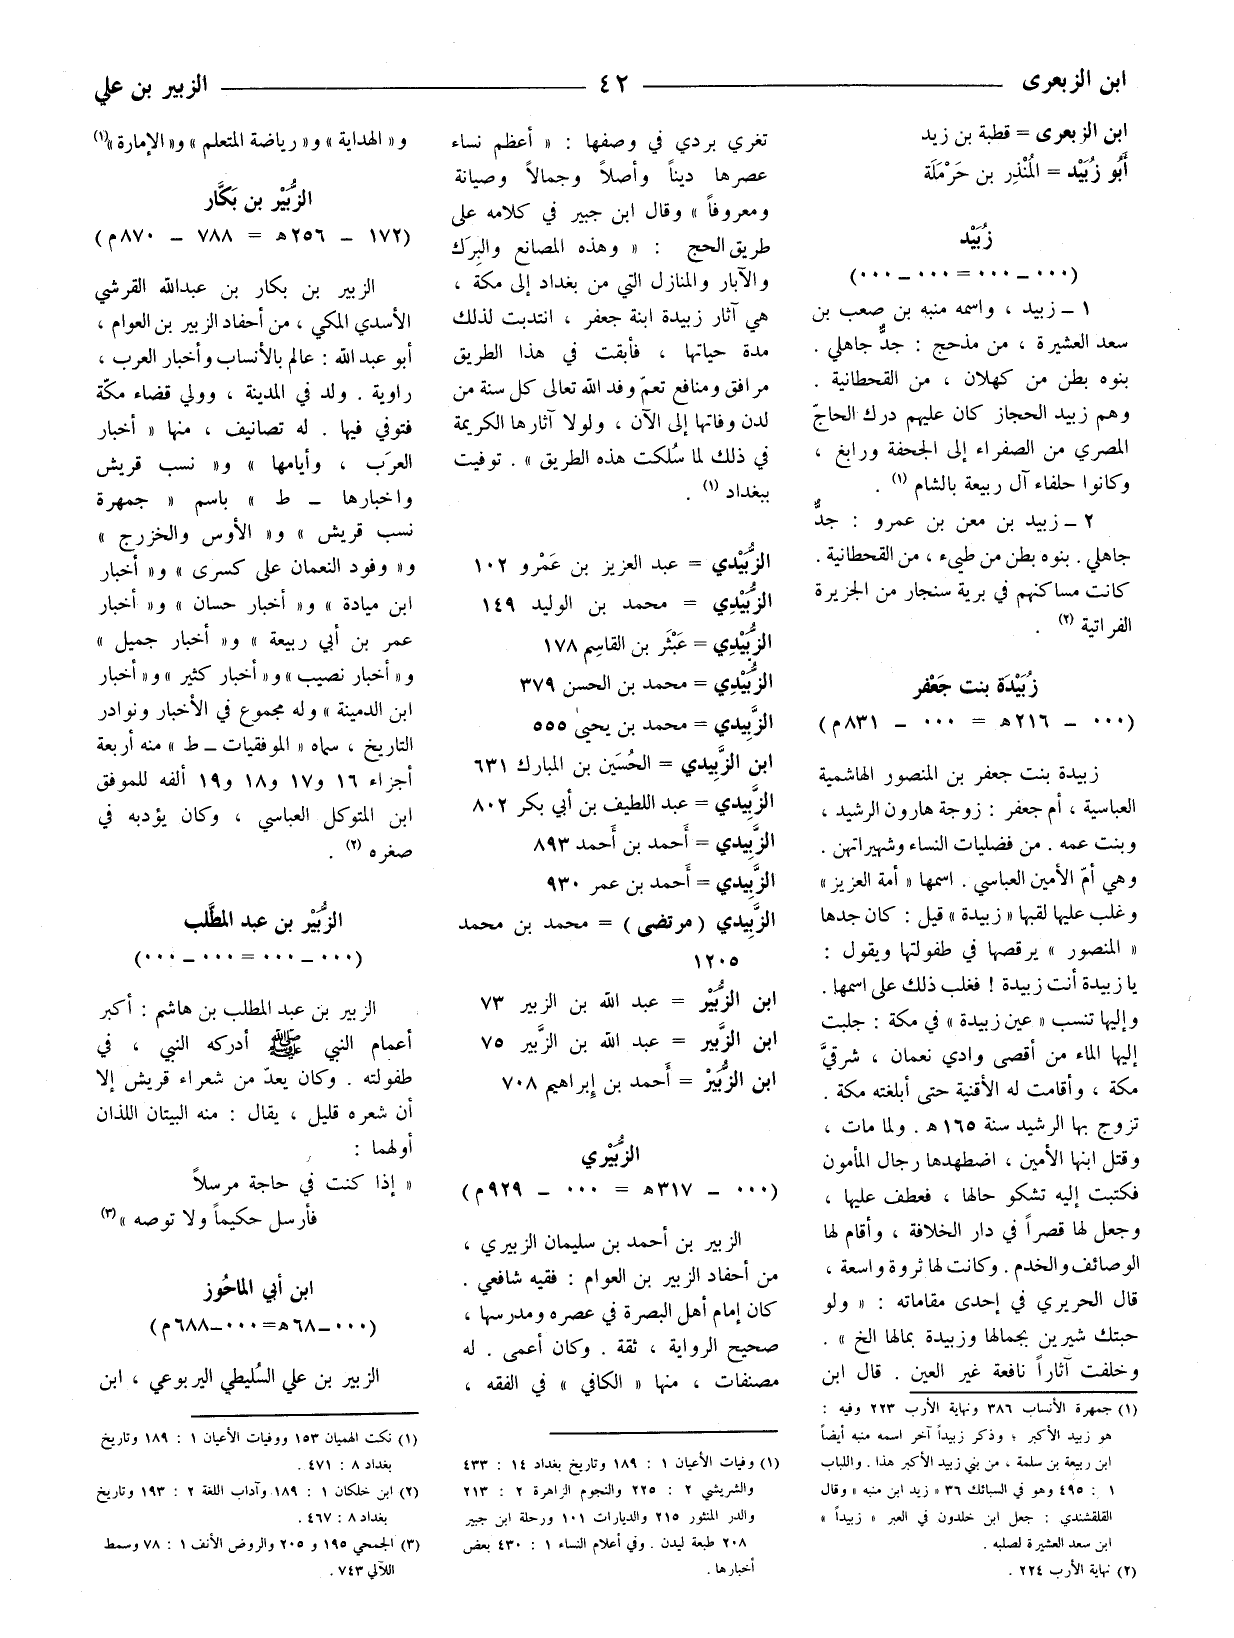 ابن الزبعرى ٤٢ الزبير بن علي
ابن الزبعرى = قطبة بن زيد
أَبُو زُبَيْد = المُنْذِر بن حَرْمَلَة
زُبَيْد
(٠٠٠ ــ ٠٠٠ = ٠٠٠ ــ ٠٠٠)
١ ــ زبيد ، واسمه منبه بن صعب بن
سعد العشيرة ، من مذحج : جدٌّ جاهلي .
بنوه بطن من كهلان ، من القحطانية .
وهم زبيد الحجاز كان عليهم درك الحاجّ
المصري من الصفراء إلى الجحفة ورابغ ،
وكانوا حلفاء آل ربيعة بالشام (١) .
٢ ــ زبيد بن معن بن عمرو : جدٌّ
جاهلي . بنوه بطن من طيء ، من القحطانية .
كانت مساكنهم في برية سنجار من الجزيرة
الفراتية (٢) .
زُبَيْدَة بنت جَعْفر
(٠٠٠ ــ ٢١٦هـ = ٠٠٠ ــ ٨٣١م)
زبيدة بنت جعفر بن المنصور الهاشمية
العباسية ، أم جعفر : زوجة هارون الرشيد ،
وبنت عمه . من فضليات النساء وشهيراتهن .
وهي أمّ الأمين العباسي . اسمها « أمة العزيز »
وغلب عليها لقبها « زبيدة » قيل : كان جدها
« المنصور » يرقصها في طفولتها ويقول :
يا زبيدة أنت زبيدة ! فغلب ذلك على اسمها .
وإليها تنسب « عين زبيدة » في مكة : جلبت
إليها الماء من أقصى وادي نعمان ، شرقيَّ
مكة ، وأقامت له الأقنية حتى أبلغته مكة .
تزوج بها الرشيد سنة ١٦٥هـ . ولما مات ،
وقتل ابنها الأمين ، اضطهدها رجال المأمون
فكتبت إليه تشكو حالها ، فعطف عليها ،
وجعل لها قصراً في دار الخلافة ، وأقام لها
الوصائف والخدم . وكانت لها ثروة واسعة ،
قال الحريري في إحدى مقاماته : « ولو
حبتك شيرين بجمالها وزبيدة بمالها الخ » .
وخلفت آثاراً نافعة غير العين . قال ابن
(١) جمهرة الأنساب ٣٨٦ ونهاية الأرب ٢٢٣ وفيه :
هو زبيد الأكبر ؛ وذكر زبيداً آخر اسمه منبه أيضاً
ابن ربيعة بن سلمة ، من بني زبيد الأكبر هذا . واللباب
١ : ٤٩٥ وهو في السبائك ٣٦ « زيد ابن منبه » وقال
القلقشندي : جعل ابن خلدون في العبر « زبيداً »
ابن سعد العشيرة لصلبه .
(٢) نهاية الأرب ٢٢٤ .
تغري بردي في وصفها : « أعظم نساء
عصرها ديناً وأصلاً وجمالاً وصيانة
ومعروفاً » وقال ابن جبير في كلامه على
طريق الحج : « وهذه المصانع والبِرَك
والآبار والمنازل التي من بغداد إلى مكة ،
هي آثار زبيدة ابنة جعفر ، انتدبت لذلك
مدة حياتها ، فأبقت في هذا الطريق
مرافق ومنافع تعمّ وفد الله تعالى كل سنة من
لدن وفاتها إلى الآن ، ولولا آثارها الكريمة
في ذلك لما سُلكت هذه الطريق » . توفيت
ببغداد (١) .
الزُّبَيْدي = عبد العزيز بن عَمْرو ١٠٢
الزُّبَيْدِي = محمد بن الوليد ١٤٩
الزُّبَيْدِي = عَبْثَر بن القاسِم ١٧٨
الزُّبَيْدِي = محمد بن الحسن ٣٧٩
الزَّبِيدي = محمد بن يحيىٰ ٥٥٥
ابن الزَّبِيدي = الحُسَين بن المبارك ٦٣١
الزَّبِيدي = عبد اللطيف بن أبي بكر ٨٠٢
الزَّبِيدي = أَحمد بن أَحمد ٨٩٣
الزَّبِيدي = أَحمد بن عمر ٩٣٠
الزَّبِيدي ( مرتضى ) = محمد بن محمد
١٢٠٥
ابن الزُّبَيْر = عبد الله بن الزبير ٧٣
ابن الزَّبير = عبد الله بن الزَّبير ٧٥
ابن الزُّبَيْر = أَحمد بن إبراهيم ٧٠٨
الزُّبَيْري
(٠٠٠ ــ ٣١٧هـ = ٠٠٠ ــ ٩٢٩م)
الزبير بن أحمد بن سليمان الزبيري ،
من أحفاد الزبير بن العوام : فقيه شافعي .
كان إمام أهل البصرة في عصره ومدرسها ،
صحيح الرواية ، ثقة . وكان أعمى . له
مصنفات ، منها « الكافي » في الفقه ،
(١) وفيات الأعيان ١ : ١٨٩ وتاريخ بغداد ١٤ : ٤٣٣
والشريشي ٢ : ٢٢٥ والنجوم الزاهرة ٢ : ٢١٣
والدر المنثور ٢١٥ والديارات ١٠١ ورحلة ابن جبير
٢٠٨ طبعة ليدن . وفي أعلام النساء ١ : ٤٣٠ بعض
أخبارها .
و« الهداية » و« رياضة المتعلم » و« الإمارة »(١)
الزُّبَيْر بن بَكَّار
(١٧٢ ــ ٢٥٦هـ = ٧٨٨ ــ ٨٧٠م)
الزبير بن بكار بن عبدالله القرشي
الأسدي المكي ، من أحفاد الزبير بن العوام ،
أبو عبد الله : عالم بالأنساب وأخبار العرب ،
راوية . ولد في المدينة ، وولي قضاء مكّة
فتوفي فيها . له تصانيف ، منها « أخبار
العرَب ، وأيامها » و« نسب قريش
واخبارها ــ ط » باسم « جمهرة
نسب قريش » و« الأوس والخزرج »
و« وفود النعمان على كسرى » و« أخبار
ابن ميادة » و« أخبار حسان » و« أخبار
عمر بن أبي ربيعة » و« أخبار جميل »
و« أخبار نصيب » و« أخبار كثير » و« أخبار
ابن الدمينة » وله مجموع في الأخبار ونوادر
التاريخ ، سماه « الموفقيات ــ ط » منه أربعة
أجزاء ١٦ و١٧ و١٨ و١٩ ألفه للموفق
ابن المتوكل العباسي ، وكان يؤدبه في
صغره (٢) .
الزُّبَيْر بن عبد المطَّلب
(٠٠٠ ــ ٠٠٠ = ٠٠٠ ــ ٠٠٠)
الزبير بن عبد المطلب بن هاشم : أكبر
أعمام النبي ﷺ أدركه النبي ، في
طفولته . وكان يعدّ من شعراء قريش إلا
أن شعره قليل ، يقال : منه البيتان اللذان
أولهما :
« إذا كنت في حاجة مرسلاً
فأرسل حكيماً ولا توصه »(٣)
ابن أبي الماحُوز
(٠٠٠ ــ ٦٨هـ = ٠٠٠ ــ ٦٨٨م)
الزبير بن علي السُليطي اليربوعي ، ابن
(١) نكت الهميان ١٥٣ ووفيات الأعيان ١ : ١٨٩ وتاريخ
بغداد ٨ : ٤٧١ .
(٢) ابن خلكان ١ : ١٨٩ وآداب اللغة ٢ : ١٩٣ وتاريخ
بغداد ٨ : ٤٦٧ .
(٣) الجمحي ١٩٥ و ٢٠٥ والروض الأنف ١ : ٧٨ وسمط
اللآلي ٧٤٣ .